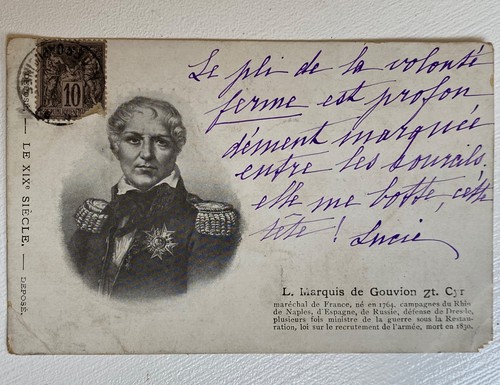 10
Le pli de la volonté
ferme est profon
dément marquée
entre les sourcils.
elle me botte, cette
tête ! Lucie
LE XIXe SIÈCLE. — DÉPOSÉ.
L. Marquis de Gouvion St. Cyr
maréchal de France, né en 1764, campagnes du Rhin
de Naples, d'Espagne, de Russie, défense de Dresde,
plusieurs fois ministre de la guerre sous la Restau-
ration, loi sur le recrutement de l'armée, mort en 1830.